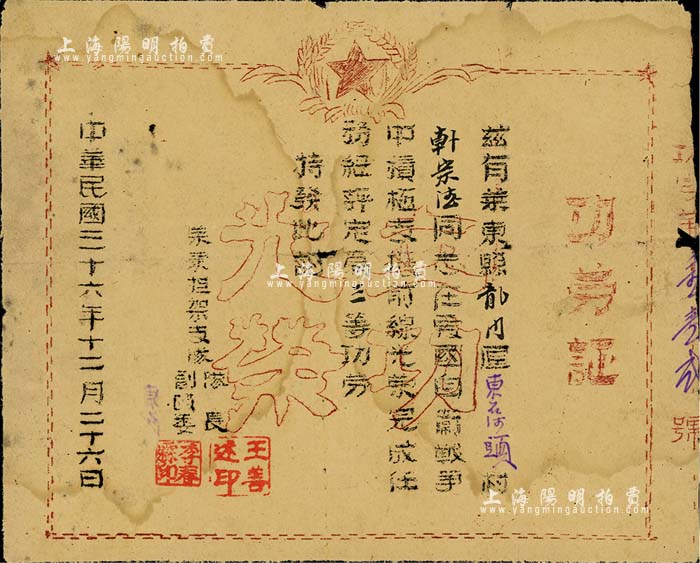 功勞証
號
茲有萊東縣 區東石河頭村
軒崇德同志在愛國自衛戰爭
中積極支援前線光榮完成任
務經評定為三等功勞
特發此証
立功
光榮
萊東担架支隊 隊長
副政委
王善述印
中華民國三十六年十二月二十六日
上海陽明拍賣
www.yangmingauction.com
上海陽明拍賣
www.yangmingauction.com
上海陽明拍賣
www.yangmingauction.com
上海陽明拍賣
www.yangmingauction.com
上海陽明拍賣
www.yangmingauction.com